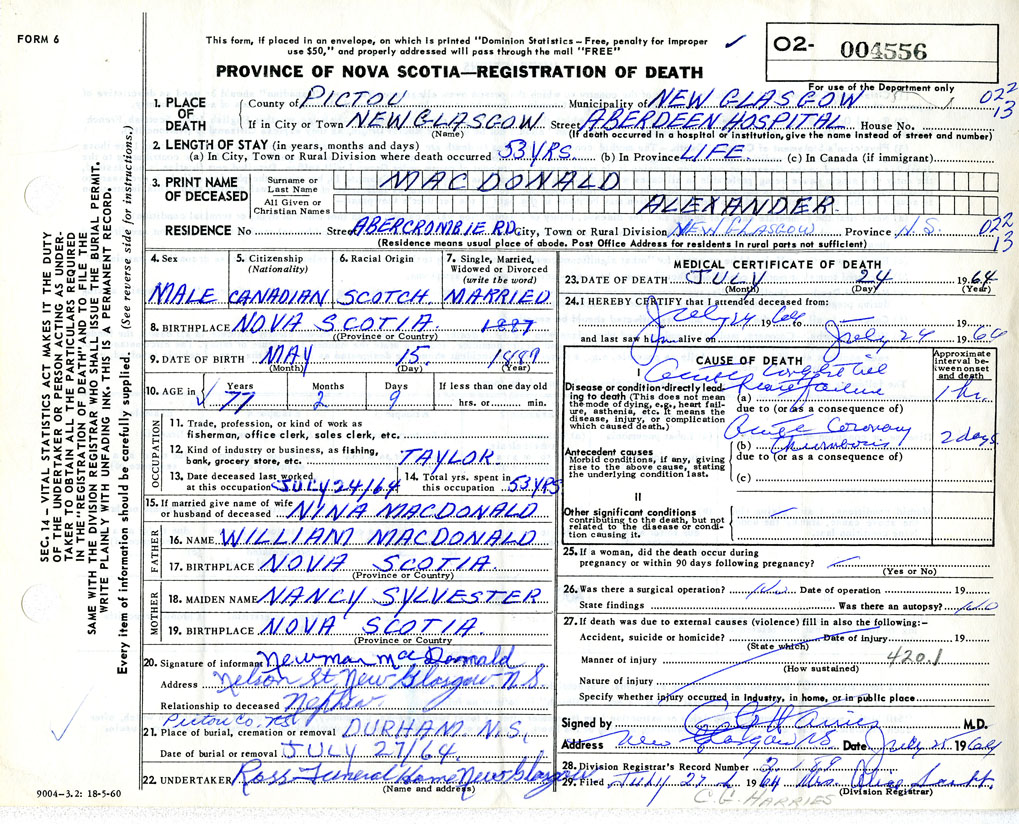 FORM 6
This form, if placed in an envelope, on which is printed "Dominion Statistics – Free, penalty for improper
use $50," and properly addressed will pass through the mail "FREE"
02- 004556
For use of the Department only
PROVINCE OF NOVA SCOTIA—REGISTRATION OF DEATH
022
13
1. PLACE OF DEATH
County of PICTOU Municipality of NEW GLASGOW
If in City or Town NEW GLASGOW Street ABERDEEN HOSPITAL House No.
(Name) (If death occurred in a hospital or institution, give the name instead of street and number)
2. LENGTH OF STAY (in years, months and days)
(a) In City, Town or Rural Division where death occurred 53 YRS. (b) In Province LIFE. (c) In Canada (if immigrant)
3. PRINT NAME OF DECEASED
Surname or Last Name MACDONALD
All Given or Christian Names ALEXANDER
RESIDENCE No Street ABERCROMBIE RD City, Town or Rural Division NEW GLASGOW Province N.S. 022
13
(Residence means usual place of abode. Post Office Address for residents in rural parts not sufficient)
4. Sex
MALE
5. Citizenship (Nationality)
CANADIAN
6. Racial Origin
SCOTCH
7. Single, Married, Widowed or Divorced (write the word)
MARRIED
8. BIRTHPLACE NOVA SCOTIA. 1887
(Province or Country)
9. DATE OF BIRTH MAY 15 1889
(Month) (Day) (Year)
10. AGE in Years Months Days If less than one day old
77 2 9 hrs. or min.
OCCUPATION
11. Trade, profession, or kind of work as
fisherman, office clerk, sales clerk, etc.
12. Kind of industry or business, as fishing,
bank, grocery store, etc. TAYLOR.
13. Date deceased last worked
at this occupation JULY 24/64
14. Total yrs. spent in
this occupation 53 YRS
15. If married give name of wife
or husband of deceased NINA MACDONALD
FATHER
16. NAME WILLIAM MACDONALD
17. BIRTHPLACE NOVA SCOTIA.
(Province or Country)
MOTHER
18. MAIDEN NAME NANCY SYLVESTER
19. BIRTHPLACE NOVA SCOTIA.
(Province or Country)
20. Signature of informant Newman MacDonald
Address Nelson St New Glasgow N.S.
Relationship to deceased Nephew
Pictou Co. N.S.
21. Place of burial, cremation or removal DURHAM. N.S.,
Date of burial or removal JULY 27/64.
22. UNDERTAKER Ross Funeral Home New Glasgow
(Name and address)
MEDICAL CERTIFICATE OF DEATH
23. DATE OF DEATH JULY 24 1964
(Month) (Day) (Year)
24. I HEREBY CERTIFY that I attended deceased from:
July 24 1964 to 19
and last saw him alive on July 24 1964
CAUSE OF DEATH
Approximate interval between onset and death
I
Disease or condition directly leading to death (This does not mean the mode of dying, e.g., heart failure, asthenia, etc. It means the disease, injury, or complication which caused death.)
(a) Acute Congestive Heart Failure 1 hr.
due to (or as a consequence of
Antecedent causes
Morbid conditions, if any, giving rise to the above cause, stating the underlying condition last.
(b) Acute Coronary Thrombosis 2 days
due to (or as a consequence of
(c)
II
Other significant conditions
contributing to the death, but not related to the disease or condition causing it.
25. If a woman, did the death occur during
pregnancy or within 90 days following pregnancy?
(Yes or No)
26. Was there a surgical operation? No Date of operation 19
State findings Was there an autopsy? No
27. If death was due to external causes (violence) fill in also the following:–
Accident, suicide or homicide? Date of injury 19
(State which)
Manner of injury 420.1
(How sustained)
Nature of injury
Specify whether injury occurred in Industry, in home, or in public place
Signed by M.D.
Address New Glasgow NS Date July 25 1964
28. Division Registrar's Record Number
29. Filed July 27 1964 Mrs.
(Division Registrar)
C.G. HARRIES
9004-3.2: 18-5-60
SEC. 14 – VITAL STATISTICS ACT MAKES IT THE DUTY
OF THE UNDERTAKER OR PERSON ACTING AS UNDER-
TAKER TO OBTAIN ALL THE PARTICULARS REQUIRED
IN THE "REGISTRATION OF DEATH" AND TO FILE THE
SAME WITH THE DIVISION REGISTRAR WHO SHALL ISSUE THE BURIAL PERMIT.
WRITE PLAINLY WITH UNFADING INK. THIS IS A PERMANENT RECORD.
Every item of information should be carefully supplied. (See reverse side for instructions.)